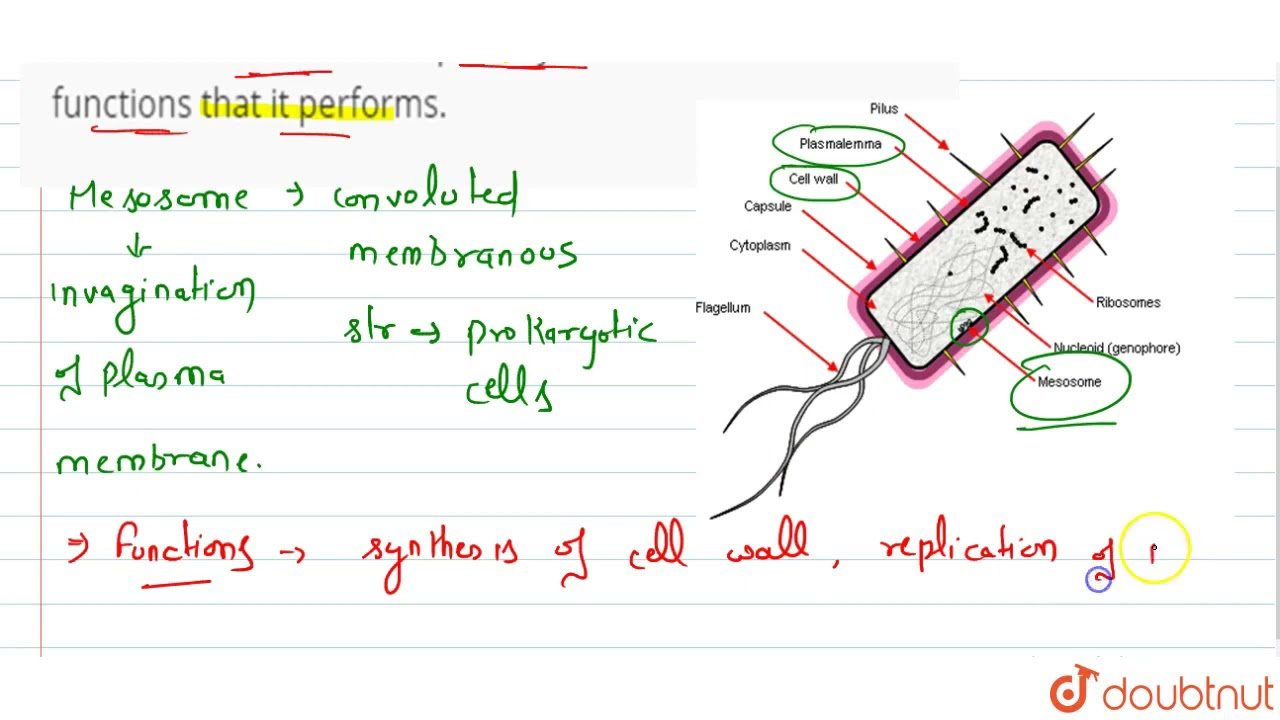 functions that it performs.
Mesosome → convoluted
↓
membranous
invagination
str → prokaryotic
of plasma
cells
membrane.
⇒ functions → synthesis of cell wall, replication of
Pilus
Plasmalemma
Cell wall
Capsule
Cytoplasm
Flagellum
Ribosomes
Nucleoid (genophore)
Mesosome
doubtnut